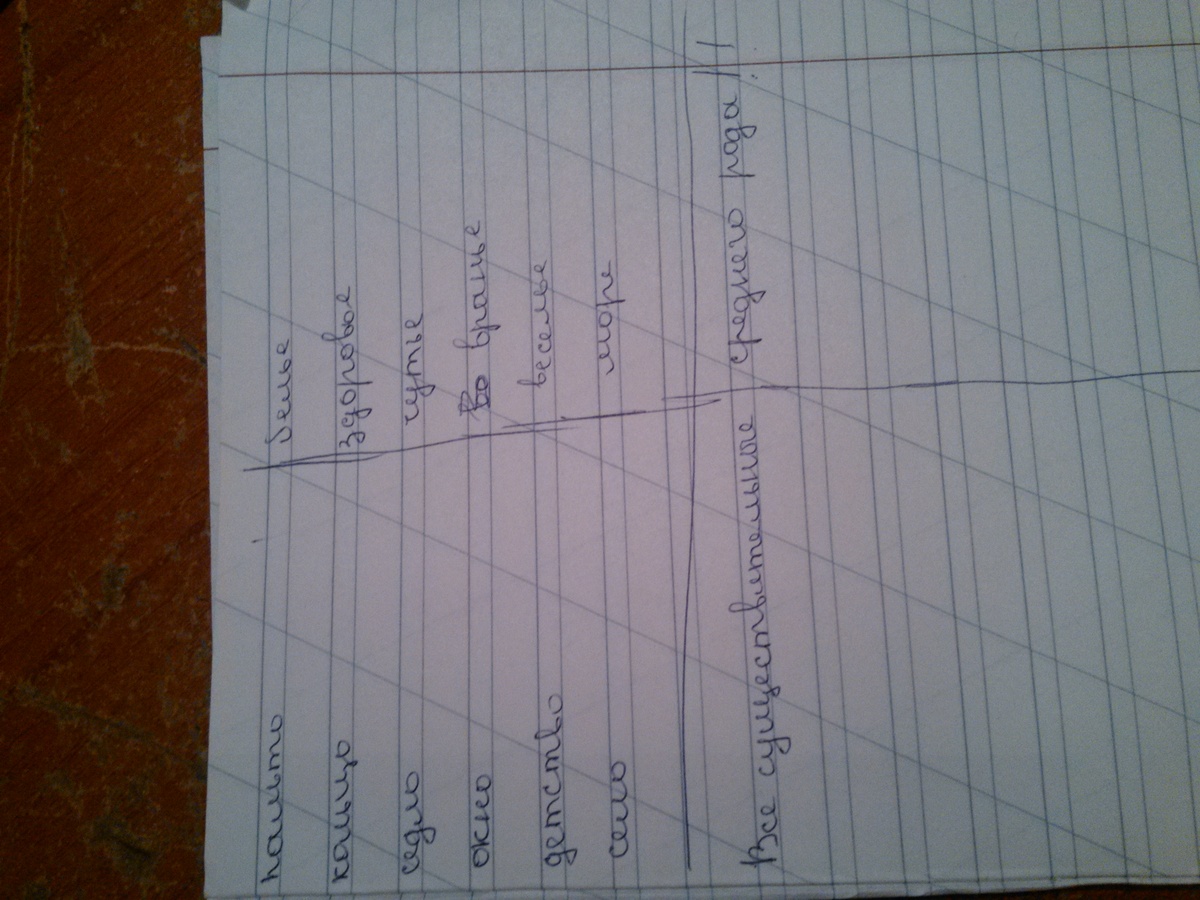 пальто белье
кольцо здоровье
седло чутье
окно во вранье
детство веселье
село море
Все существительные среднего рода!!